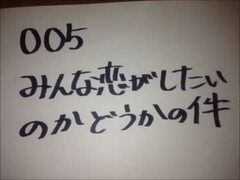 005
みんな恋がしたい
のかどうかの件